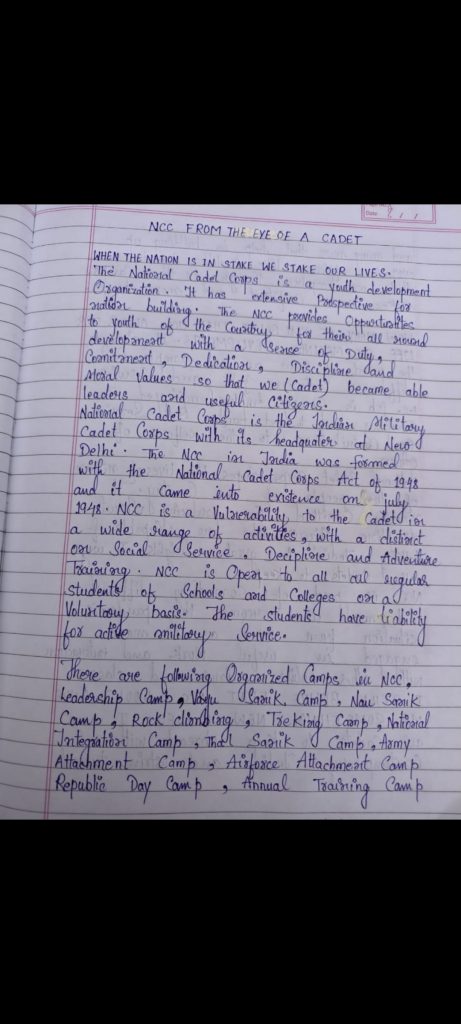 Date
NCC FROM THE EYE OF A CADET
WHEN THE NATION IS IN STAKE WE STAKE OUR LIVES.
The National Cadet Corps is a youth development
Organization. It has extensive Prospective for
nation building. The NCC provides Opportunities
to youth of the Country for their all round
development with a sense of Duty,
Comitment, Dedication, Discipline and
Moral Values so that we (Cadet) became able
leaders and useful Citizens.
National Cadet Corps is the Indian Military
Cadet Corps with its headquater at New
Delhi. The NCC in India was formed
with the National Cadet Corps Act of 1948
and it came into existence on July
1948. NCC is a Vulnerability to the Cadet in
a wide range of activities, with a distinct
on Social Service, Decipline and Adventure
Training. NCC is Open to all regular
students of Schools and Colleges on a
Voluntary basis. The students have liability
for active military Service.
There are following Organized Camps in NCC,
Leadership Camp, Vayu Sanik Camp, Nau Sanik
Camp, Rock climbing, Treking Camp, National
Integration Camp, Thal Sanik Camp, Army
Attachment Camp, Airforce Attachment Camp
Republic Day Camp, Annual Training Camp